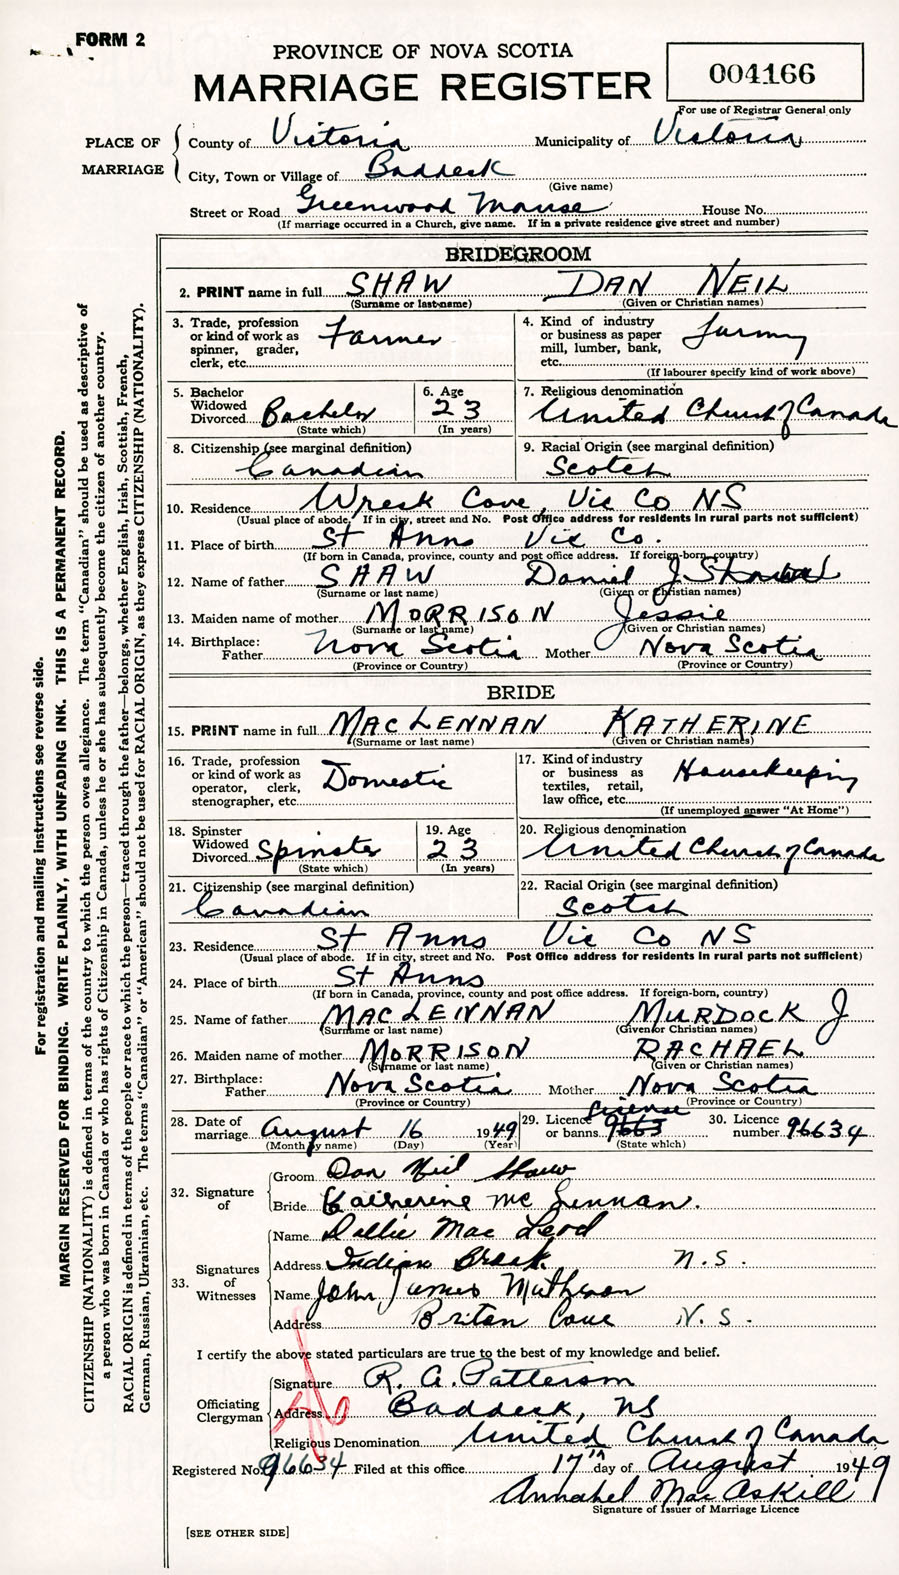 FORM 2
PROVINCE OF NOVA SCOTIA
MARRIAGE REGISTER
004166
For use of Registrar General only
PLACE OF MARRIAGE
County of Victoria Municipality of Victoria
City, Town or Village of Baddeck
(Give name)
Street or Road Greenwood Manse House No.
(If marriage occurred in a Church, give name. If in a private residence give street and number)
BRIDEGROOM
2. PRINT name in full SHAW DAN NEIL
(Surname or last name) (Given or Christian names)
3. Trade, profession or kind of work as spinner, grader, clerk, etc. Farmer
4. Kind of industry or business as paper mill, lumber, bank, etc.
(If labourer specify kind of work above)
5. Bachelor Widowed Divorced Bachelor
(State which)
6. Age 23
(In years)
7. Religious denomination
United Church of Canada
8. Citizenship (see marginal definition)
Canadian
9. Racial Origin (see marginal definition)
Scotch
10. Residence Wreck Cove, Vic Co NS
(Usual place of abode. If in city, street and No. Post Office address for residents in rural parts not sufficient)
11. Place of birth St Anns Vic Co.
(If born in Canada, province, county and post office address. If foreign-born, country)
12. Name of father SHAW Daniel J.
(Surname or last name) (Given or Christian names)
13. Maiden name of mother MORRISON Jessie
(Surname or last name) (Given or Christian names)
14. Birthplace:
Father Nova Scotia Mother Nova Scotia
(Province or Country) (Province or Country)
BRIDE
15. PRINT name in full MACLENNAN KATHERINE
(Surname or last name) (Given or Christian names)
16. Trade, profession or kind of work as operator, clerk, stenographer, etc. Domestic
17. Kind of industry or business as textiles, retail, law office, etc. Housekeeping
(If unemployed answer "At Home")
18. Spinster Widowed Divorced Spinster
(State which)
19. Age 23
(In years)
20. Religious denomination
United Church of Canada
21. Citizenship (see marginal definition)
Canadian
22. Racial Origin (see marginal definition)
Scotch
23. Residence St Anns Vic Co NS
(Usual place of abode. If in city, street and No. Post Office address for residents in rural parts not sufficient)
24. Place of birth St Anns
(If born in Canada, province, county and post office address. If foreign-born, country)
25. Name of father MACLENNAN MURDOCK J
(Surname or last name) (Given or Christian names)
26. Maiden name of mother MORRISON RACHAEL
(Surname or last name) (Given or Christian names)
27. Birthplace:
Father Nova Scotia Mother Nova Scotia
(Province or Country) (Province or Country)
28. Date of marriage August 16 1949
(Month by name) (Day) (Year)
29. Licence or banns License 9663
(State which)
30. Licence number 96634
32. Signature of
Groom Dan Neil Shaw
Bride Katherine McLennan.
33. Signatures of Witnesses
Name Dollie MacLeod
Address Indian Brook N.S.
Name John James Matheson
Address Briton Cove N.S.
I certify the above stated particulars are true to the best of my knowledge and belief.
Officiating Clergyman
Signature R. A. Patterson
Address Baddeck, NS
Religious Denomination United Church of Canada
Registered No. 96634 Filed at this office 17th day of August 1949
Annabel MacAskill
Signature of Issuer of Marriage Licence
[SEE OTHER SIDE]
For registration and mailing instructions see reverse side.
MARGIN RESERVED FOR BINDING. WRITE PLAINLY, WITH UNFADING INK. THIS IS A PERMANENT RECORD.
CITIZENSHIP (NATIONALITY) is defined in terms of the country to which the person owes allegiance. The term "Canadian" should be used as descriptive of
a person who was born in Canada or who has rights of Citizenship in Canada, unless he or she has subsequently become the citizen of another country.
RACIAL ORIGIN is defined in terms of the people or race to which the person—traced through the father—belongs, whether English, Irish, Scottish, French,
German, Russian, Ukrainian, etc. The terms "Canadian" or "American" should not be used for RACIAL ORIGIN, as they express CITIZENSHIP (NATIONALITY).